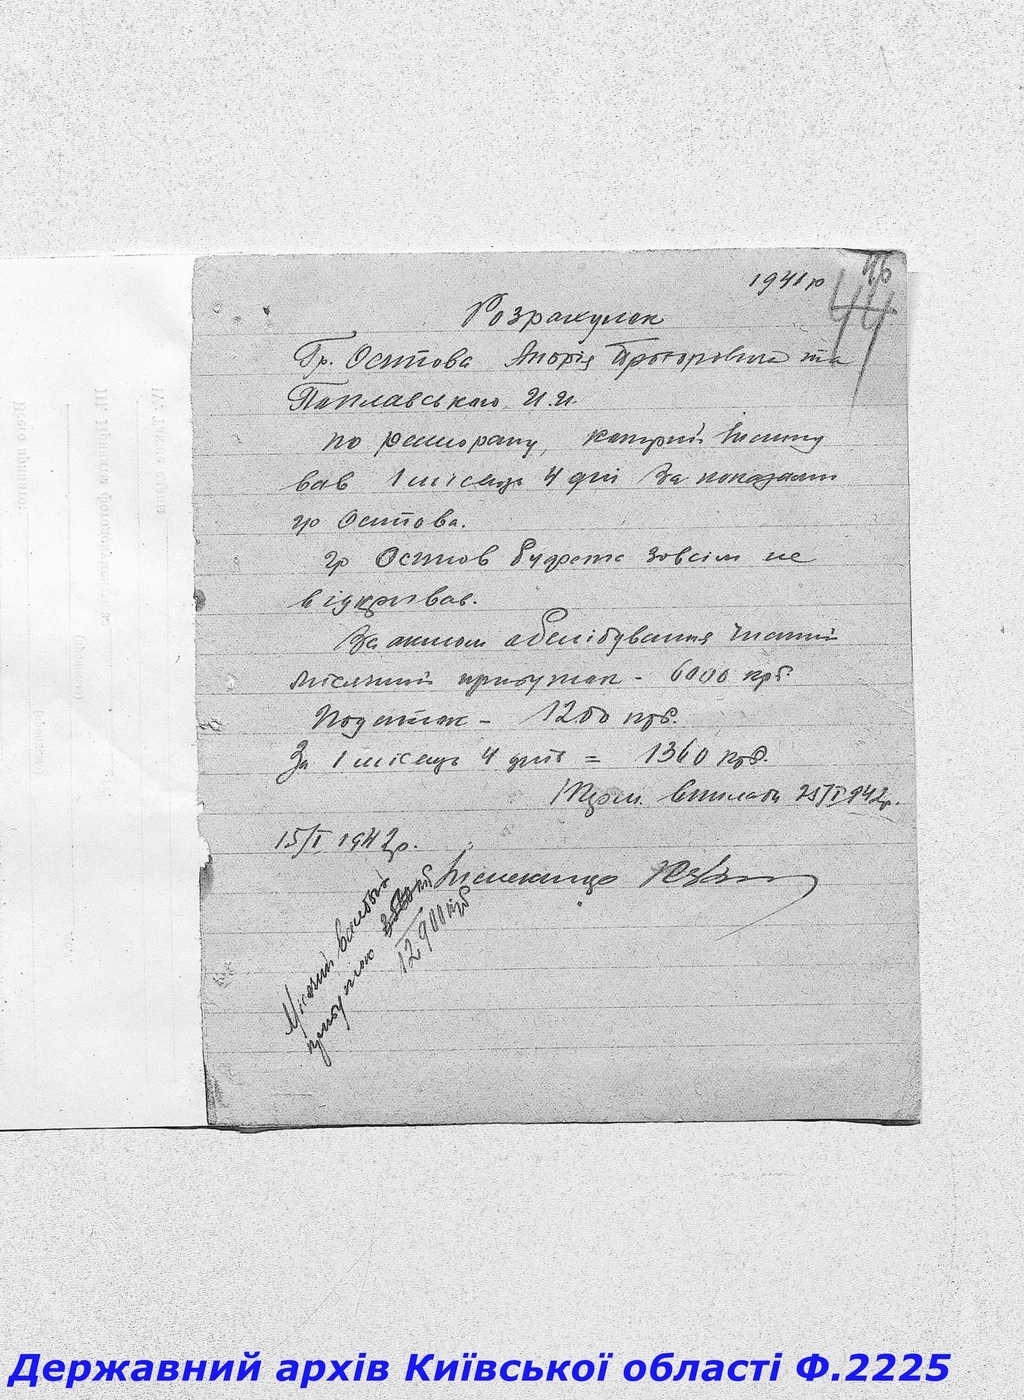 1941 р
44
Розрахунок
Гр. Осипова Андрія Прохоровича та
Поплавського И.И.
по ресторану, котрий існу
вав 1 місяць 4 дні За показами
гр Осипова.
гр Осипов буфета зовсім не
відкривав.
За актом обслідування чистий
місячний прибуток - 6000 крб.
Податок - 1200 крб.
За 1 місяць 4 днів = 1360 крб.
Терм. виплати 25/I 942р.
15/I 1942р.
Місячний валовий
прибуток
12900 крб
Державний архів Київської області Ф.2225